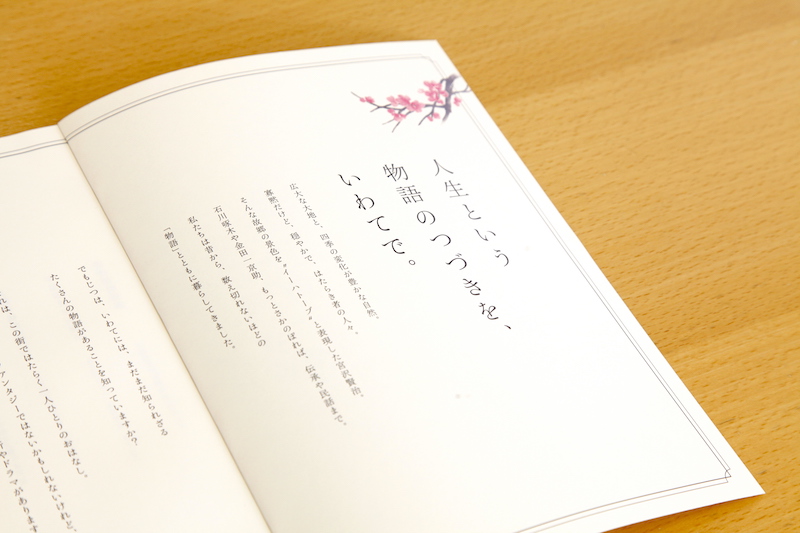 人生という
物語のつづきを、
いわてで。
広大な大地と、四季の変化が豊かな自然。
寡黙だけど、穏やかで、はたらき者の人々。
そんな故郷の景色を“イーハトーブ”と表現した宮沢賢治。
石川啄木や金田一京助、もっとさかのぼれば、伝承や民話まで。
私たちは昔から、数え切れないほどの
「物語」とともに暮らしてきました。
でもじつは、いわてには、まだまだ知られざる
たくさんの物語があることを知っていますか?
れは、この街ではたらく一人ひとりのおはなし。
ァンタジーではないかもしれないけれど、
やドラマがあります